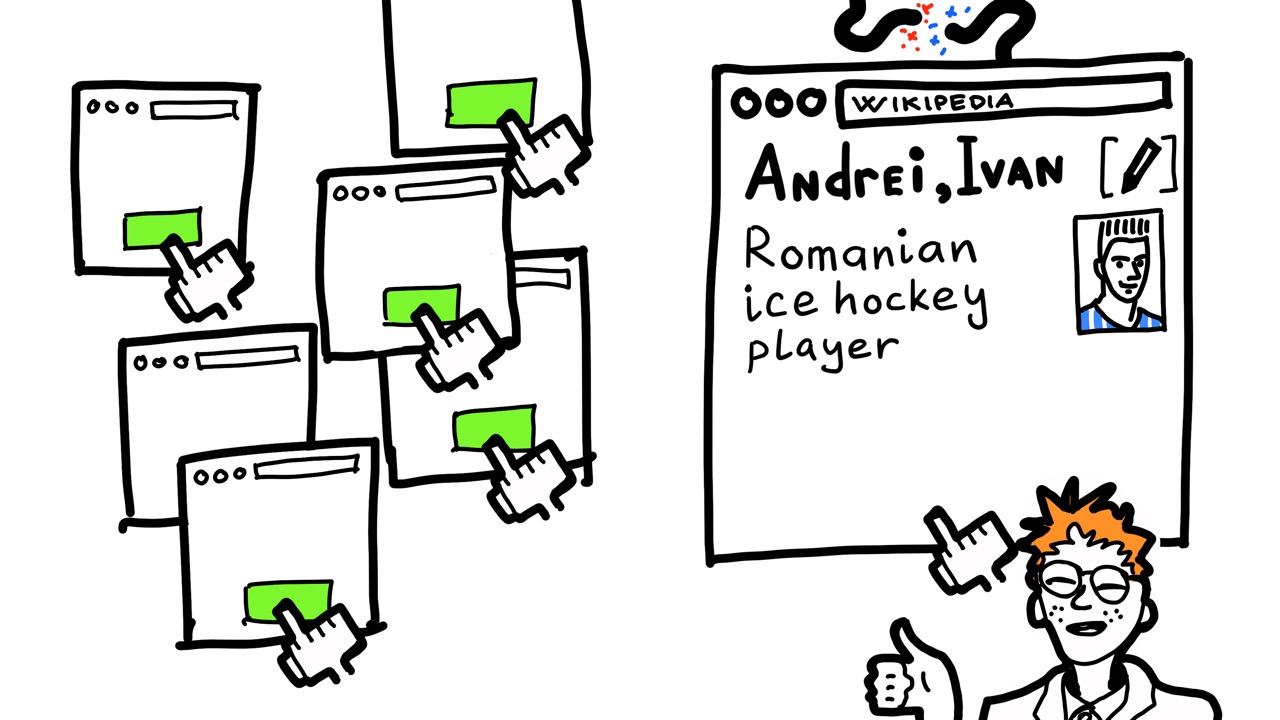 WIKIPEDIA
Andrei, Ivan
Romanian
ice hockey
player